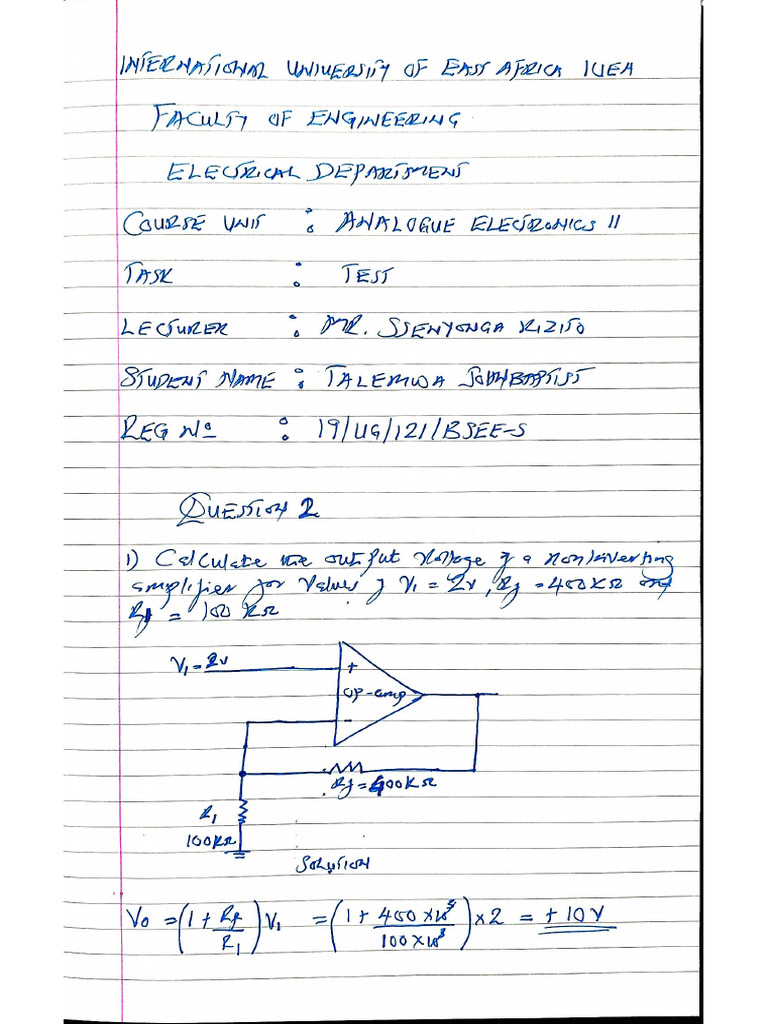 INTERNATIONAL UNIVERSITY OF EAST AFRICA IUEA
FACULTY OF ENGINEERING
ELECTRICAL DEPARTMENT
COURSE UNIT : ANALOGUE ELECTRONICS II
TASK : TEST
LECTURER : MR. SSENYONGA KIZITO
STUDENT NAME : TALEMWA JOHNBAPTIST
REG Nº : 19/UG/121/BSEE-S
QUESTION 2
1) Calculate the output voltage of a noninverting
amplifier for values of V₁ = 2v, Rf = 400KΩ and
R1 = 100 KΩ
V₁ = 2v
+
op-amp
-
Rf = 400KΩ
R₁
100KΩ
SOLUTION
Vo = (1 + Rf/R₁) V₁ = (1 + 400 × 10³/100 × 10³) × 2 = + 10V